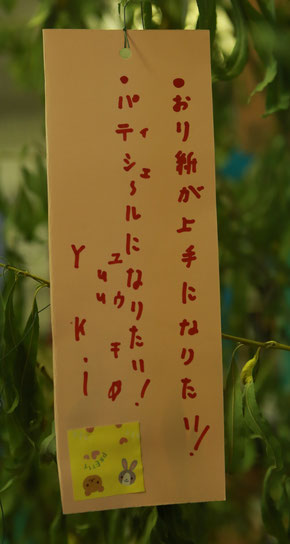 ・おり紙が上手になりたい!
・パティシェ〜ルになりたい!
ユウキ
Yuuki